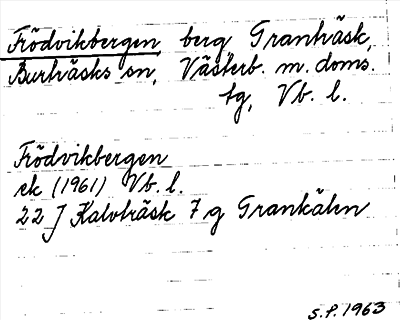 Frödvikbergen berg Granträsk,
Burträsks sn, Västerb. m. doms.
tg, Vb. l.
Frödvikbergen
ek (1961) Vb. l.
22 J Kalvträsk 7 g Grankälen
S.P. 1963